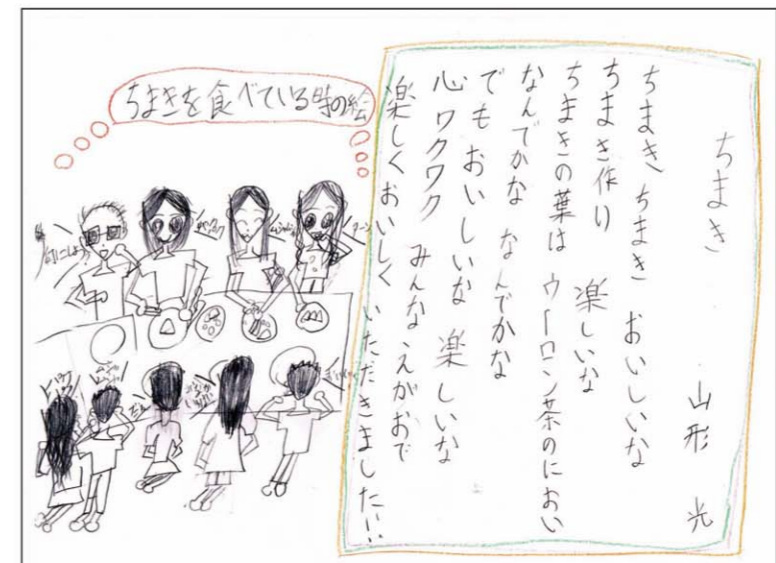 ちまき
山形 光
ちまき ちまき おいしいな
ちまき作り 楽しいな
ちまきの葉は ウーロン茶のにおい
なんでかな なんでかな
でもおいしいな 楽しいな
心ワクワク みんなえがおで
楽しくおいしく いただきました!!
ちまきを食べている時の絵